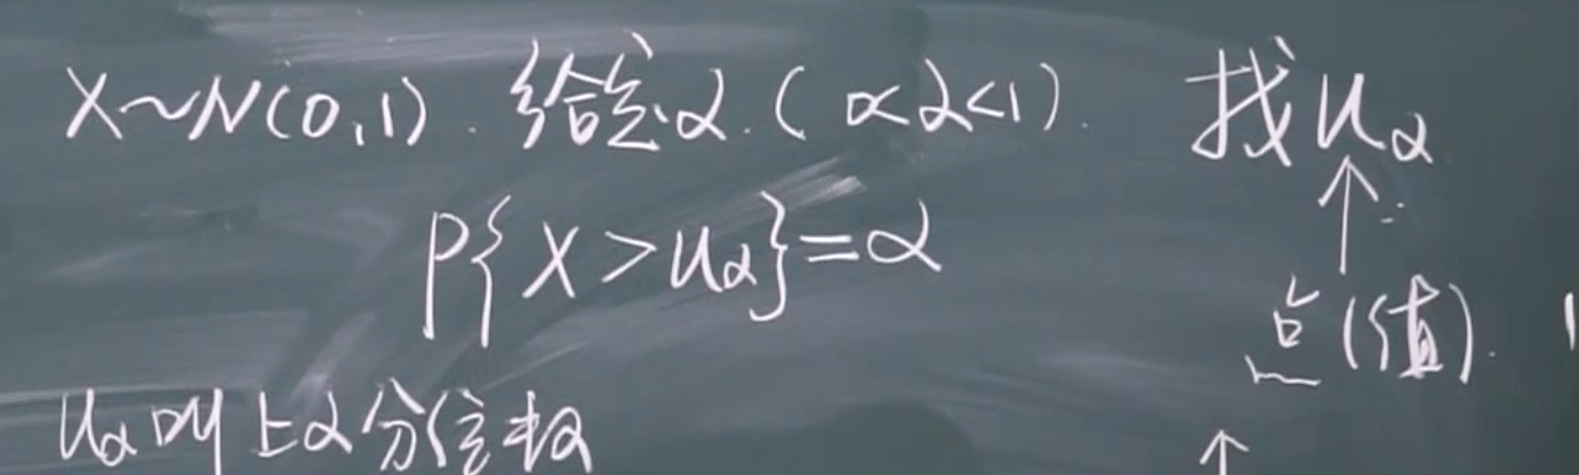 X~N(0,1). 给定α.(0<α<1). 找uα
P{X>uα}=α
点(值).
uα叫上α分位数